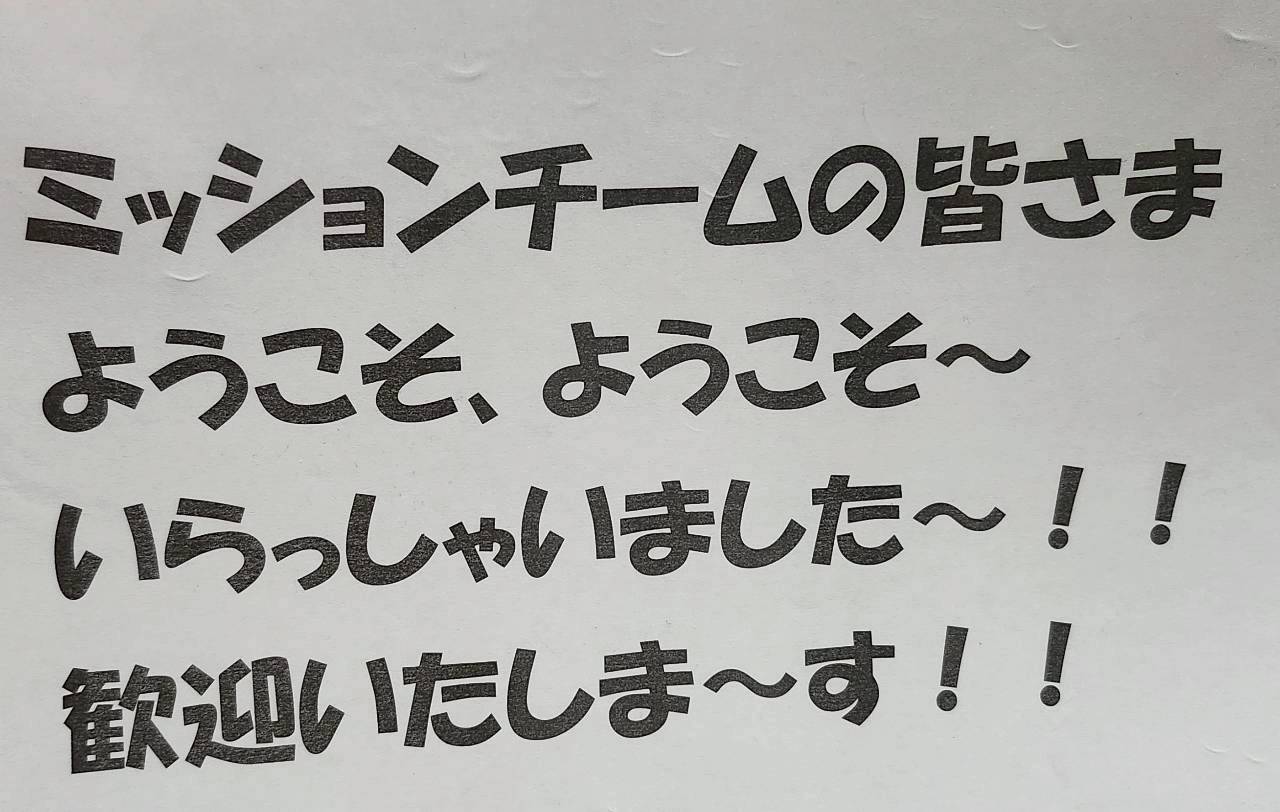 ミッションチームの皆さま
ようこそ、ようこそ～
いらっしゃいました～！！
歓迎いたしま～す！！